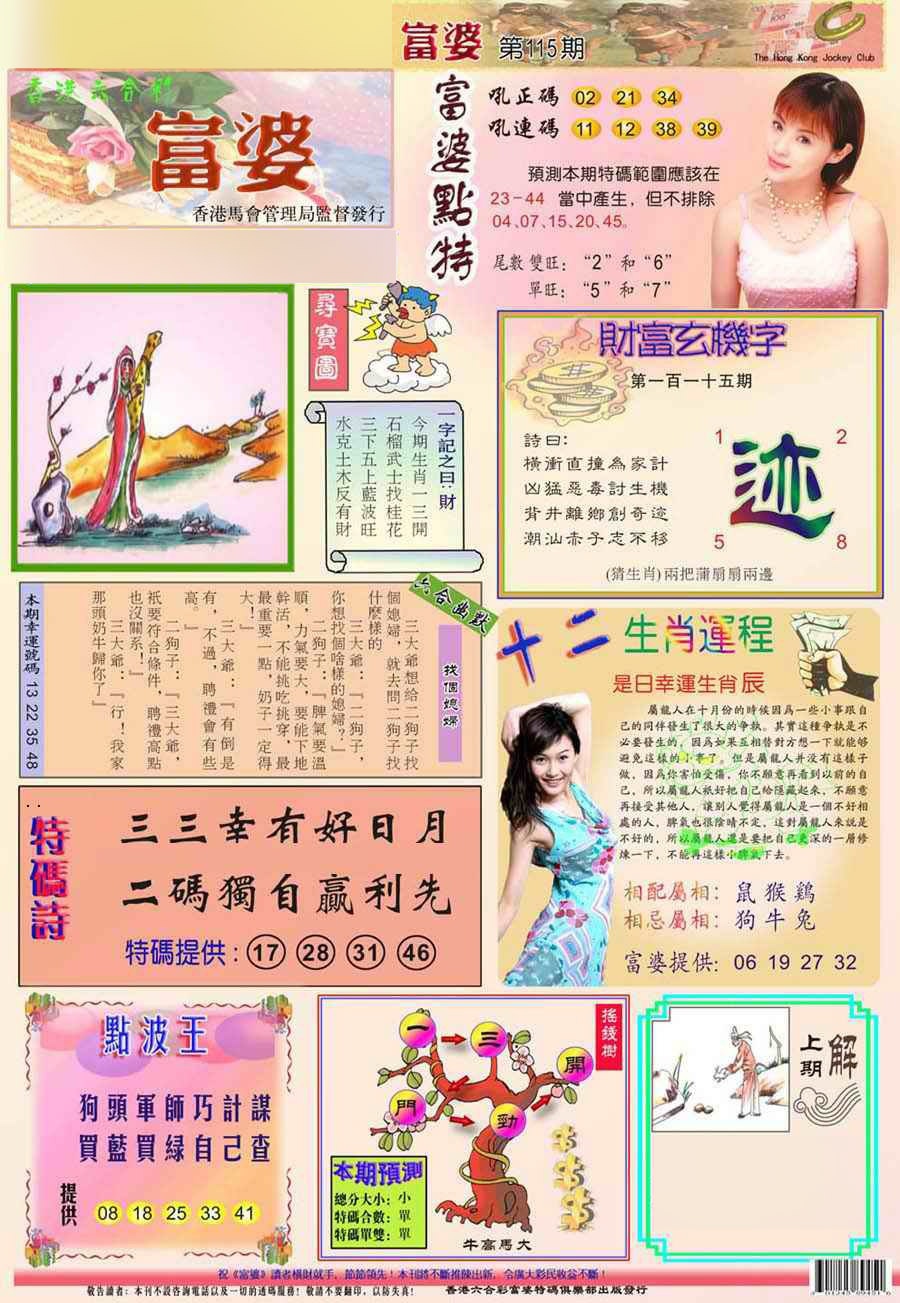 富婆 第115期
The Hong Kong Jockey Club
香港六合彩
富婆
香港馬會管理局監督發行
富婆點特
吼正碼 02 21 34
吼連碼 11 12 38 39
預測本期特碼範圍應該在
23-44 當中產生，但不排除
04、07、15、20、45。
尾數雙旺：“2”和“6”
單旺：“5”和“7”
尋寶圖
一字記之曰：財
今期生肖一三開
石榴武士找桂花
三下五上藍波旺
水克土木反有財
財富玄機字
第一百一十五期
詩曰：
橫衝直撞為家計
凶猛惡毒討生機
背井離鄉創奇迹
潮汕赤子志不移
1 2
迹
5 8
(猜生肖)兩把蒲扇扇兩邊
六合幽默
找個媳婦
三大爺想給二狗子找
個媳婦，就去問二狗子找
什麼樣的
三大爺：『二狗子，
你想找個啥樣的媳婦？』
二狗子：『脾氣要溫
順，力氣要大，要能下地
幹活，不能挑吃挑穿，最
最重要一點，奶子一定得
大！』
三大爺：『有倒是
有，不過，聘禮會有些
高。』
二狗子：『三大爺，
衹要符合條件，聘禮高點
也沒關系！』
三大爺：『行！我家
那頭奶牛歸你了』
本期幸運號碼 13 22 35 48
十二生肖運程
是日幸運生肖辰
屬龍人在十月份的時候因爲一些小事跟自
己的同伴發生了很大的争執。其實這種争執是不
必要發生的，因爲如果互相替對方想一下就能够
避免這樣的小事了。但是屬龍人并没有這樣子
做，因爲你害怕受傷，你不願意再看到以前的自
己，所以屬龍人衹好把自己給隱藏起來，不願意
再接受其他人，讓别人覺得屬龍人是一個不好相
處的人，脾氣也很陰晴不定，這對屬龍人來説是
不好的，所以屬龍人還是要把自己更深的一層修
煉一下，不能再這樣小脾氣下去。
相配屬相：鼠猴鷄
相忌屬相：狗牛兔
富婆提供：06 19 27 32
特碼詩
三三幸有好日月
二碼獨自贏利先
特碼提供：17 28 31 46
點波王
狗頭軍師巧計謀
買藍買緑自己查
提供 08 18 25 33 41
搖錢樹
一 三 開
門 勁
本期預測
總分大小：小
特碼合數：單
特碼單雙：單
牛高馬大
解上期
祝《富婆》讀者橫財就手，節節領先！本刊將不斷推陳出新，令廣大彩民收益不斷！
敬告讀者：本刊不設咨詢電話以及一切的透碼服務！敬請不要翻印，以防失真！ 香港六合彩富婆特碼俱樂部出版發行